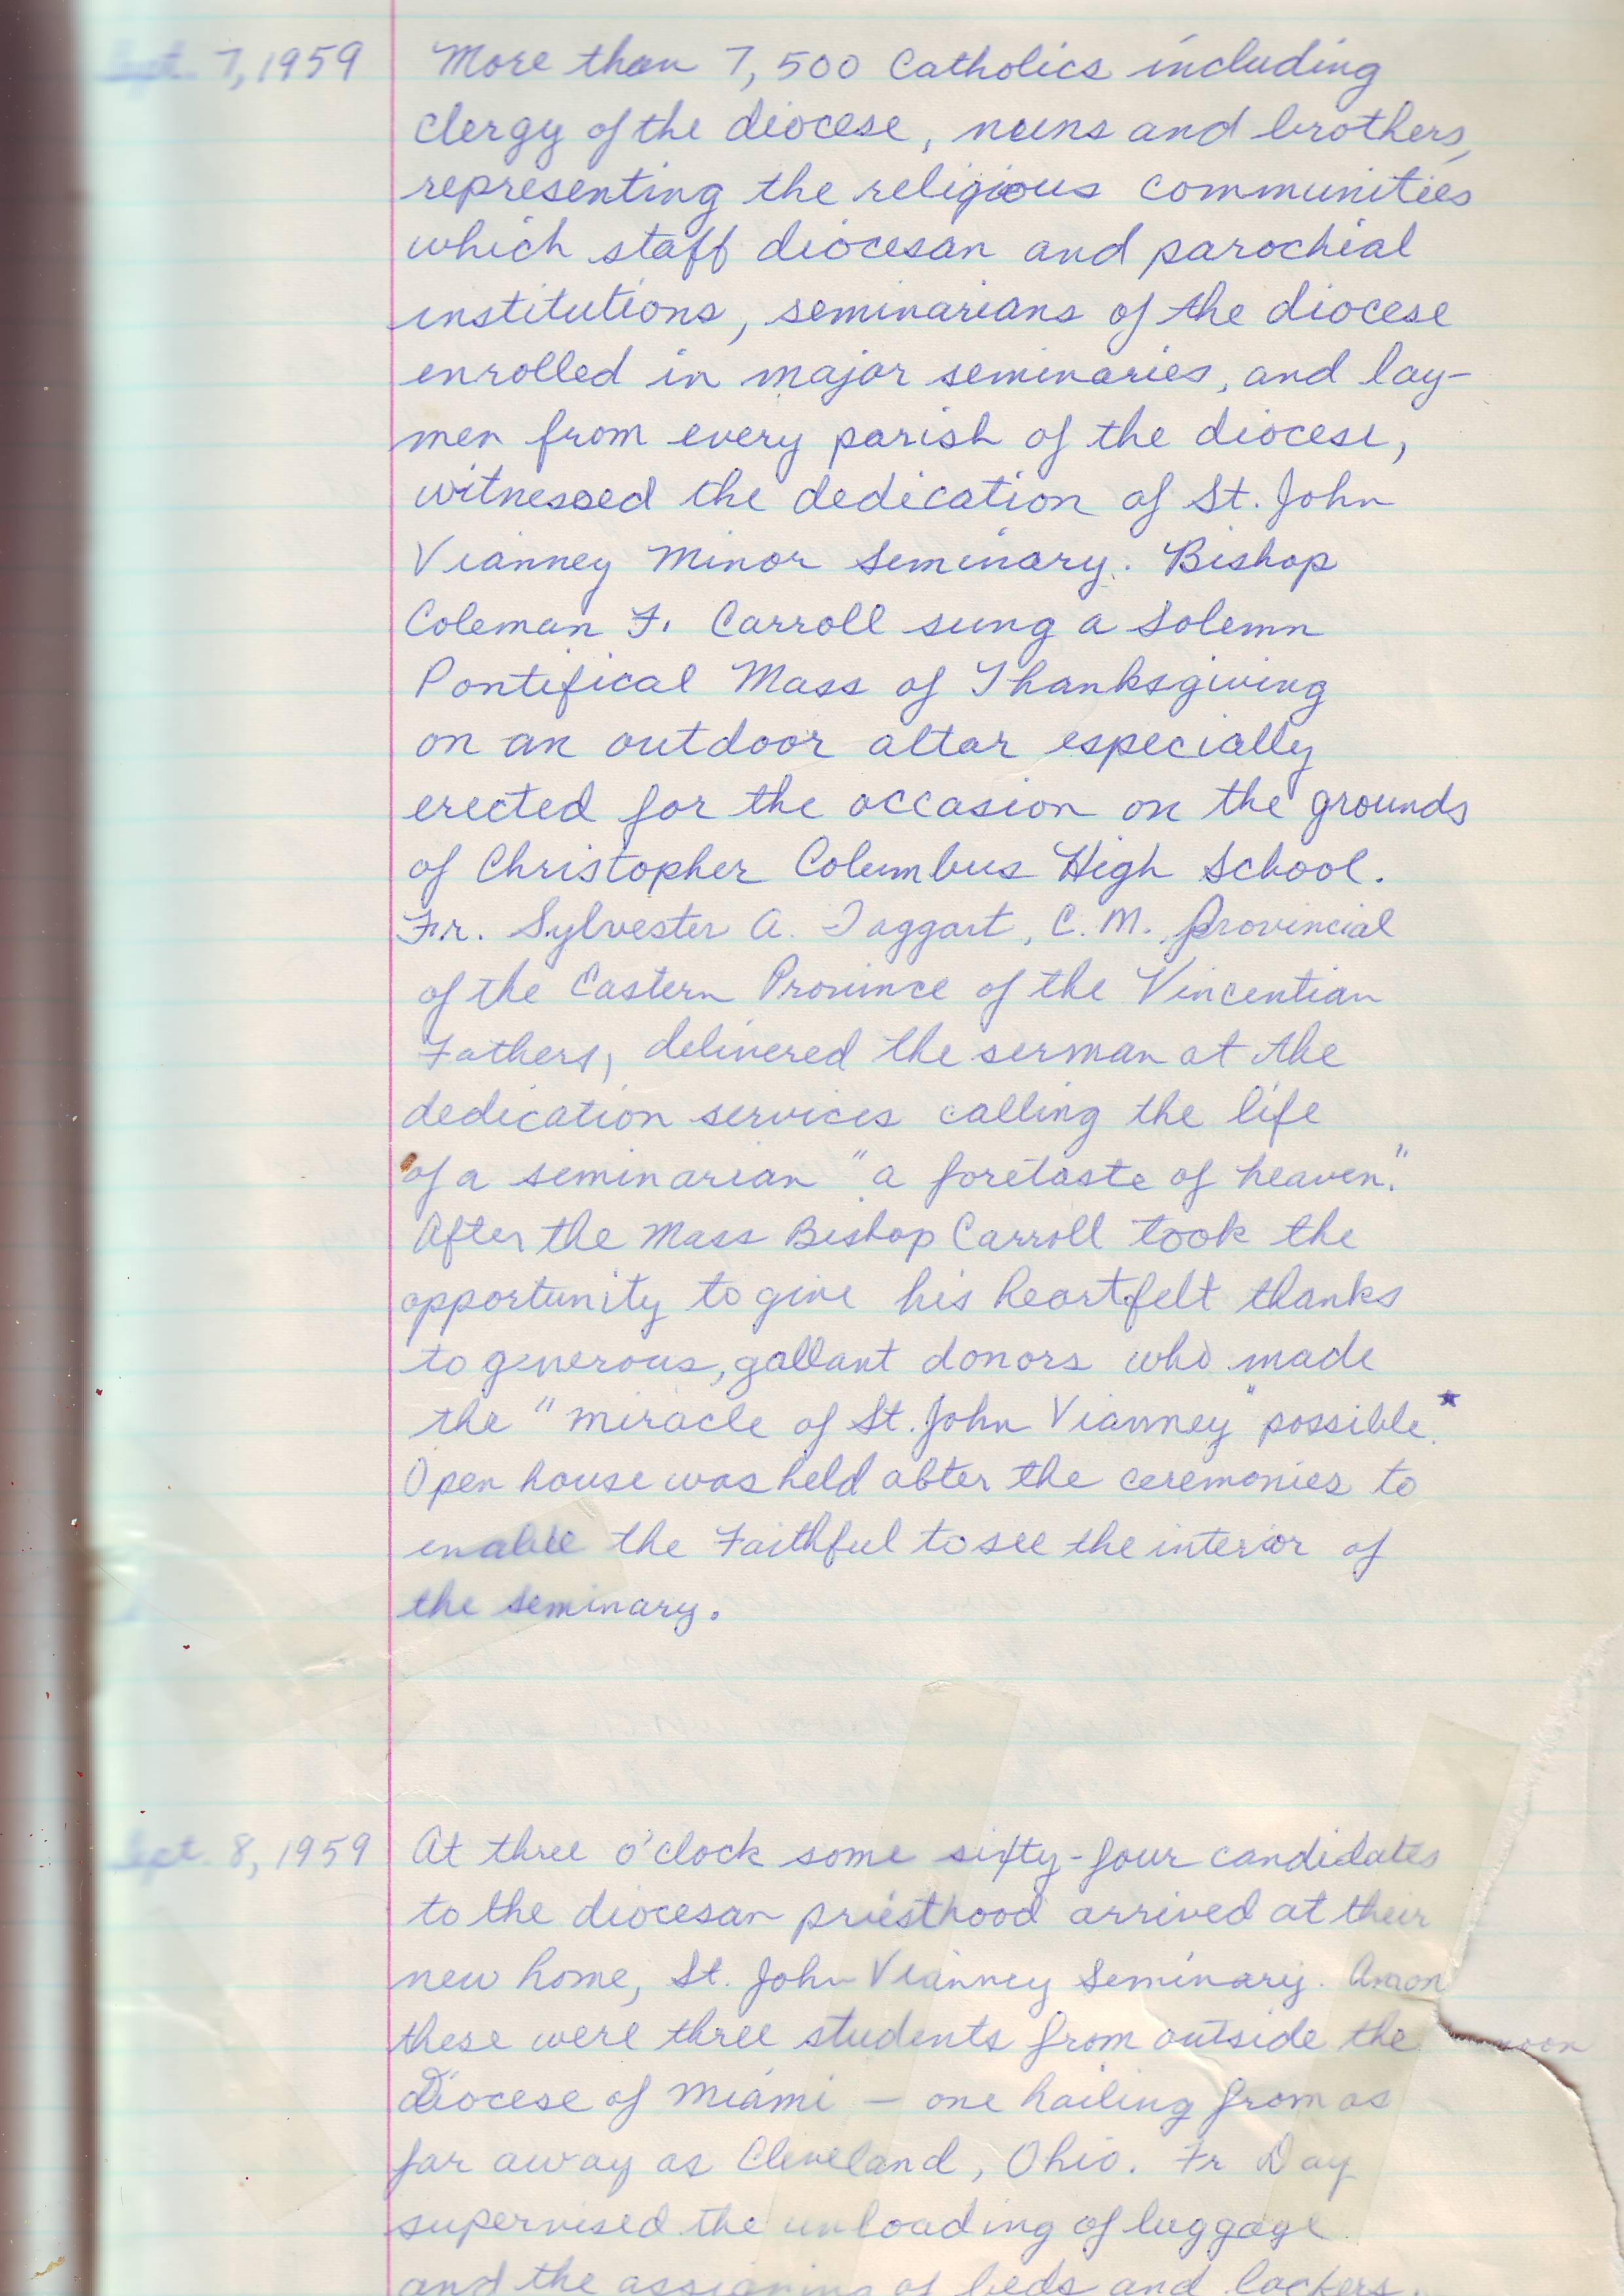 Sept. 7, 1959
More than 7,500 Catholics including
clergy of the diocese, nuns and brothers,
representing the religious communities
which staff diocesan and parochial
institutions, seminarians of the diocese
enrolled in major seminaries, and lay-
men from every parish of the diocese,
witnessed the dedication of St. John
Vianney Minor Seminary. Bishop
Coleman F. Carroll sung a Solemn
Pontifical Mass of Thanksgiving
on an outdoor altar especially
erected for the occasion on the grounds
of Christopher Columbus High School.
Fr. Sylvester A. Taggart, C.M. Provincial
of the Eastern Province of the Vincentian
Fathers, delivered the serman at the
dedication services calling the life
of a seminarian "a foretaste of heaven."
After the Mass Bishop Carroll took the
opportunity to give his heartfelt thanks
to generous, gallant donors who made
the "miracle of St. John Vianney" possible.*
Open house was held abter the ceremonies to
enable the Faithful to see the interior of
the seminary.
Sept. 8, 1959
At three o'clock some sixty-four candidates
to the diocesan priesthood arrived at their
new home, St. John Vianney Seminary. Amon
these were three students from outside the
Diocese of Miami — one hailing from as
far away as Cleveland, Ohio. Fr Day
supervised the unloading of luggage
and the assigning of beds and lockers.